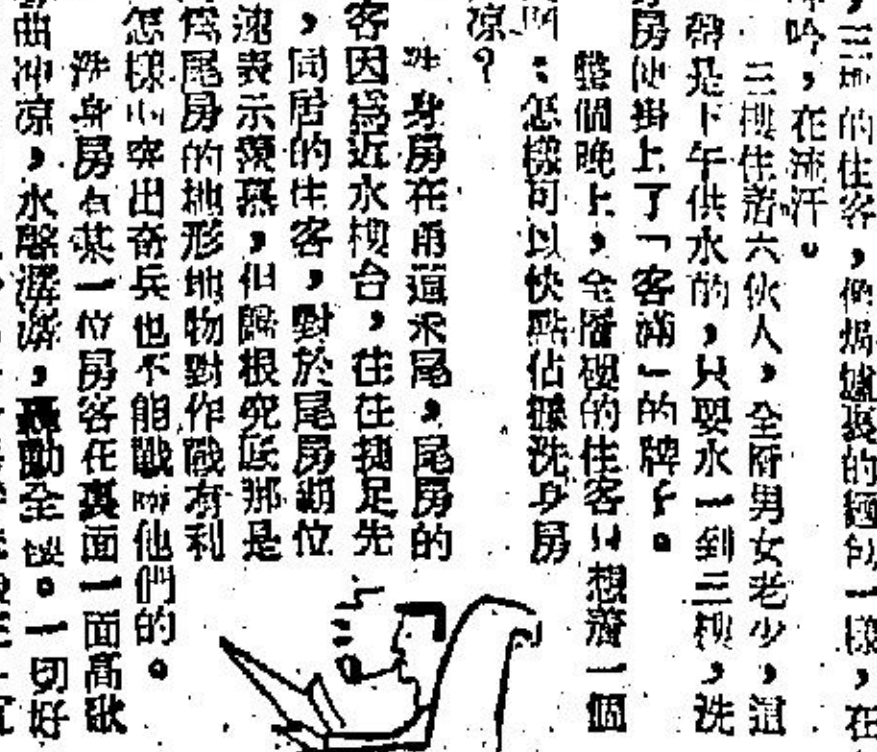 ,三樓的住客,像焗爐裏的麵包一樣,在
吟,在流汗。
三樓住着六伙人,全層男女老少,這
是下午供水的,只要水一到三樓,洗
房便掛上了「客滿」的牌子。
整個晚上,全層樓的住客只想着一個
:怎樣可以快點佔據洗身房
凉?
洗身房在甬道末尾,尾房的
客因爲近水樓台,往往捷足先
,同居的住客,對於尾房那位
表示羨慕,但歸根究底那是
爲尾房的地形地物對作戰有利
怎樣的突出奇兵也不能戰勝他們的。
洗身房有某一位房客在裏面一面高歌
曲冲凉,水聲潺潺,轟動全樓。一切好